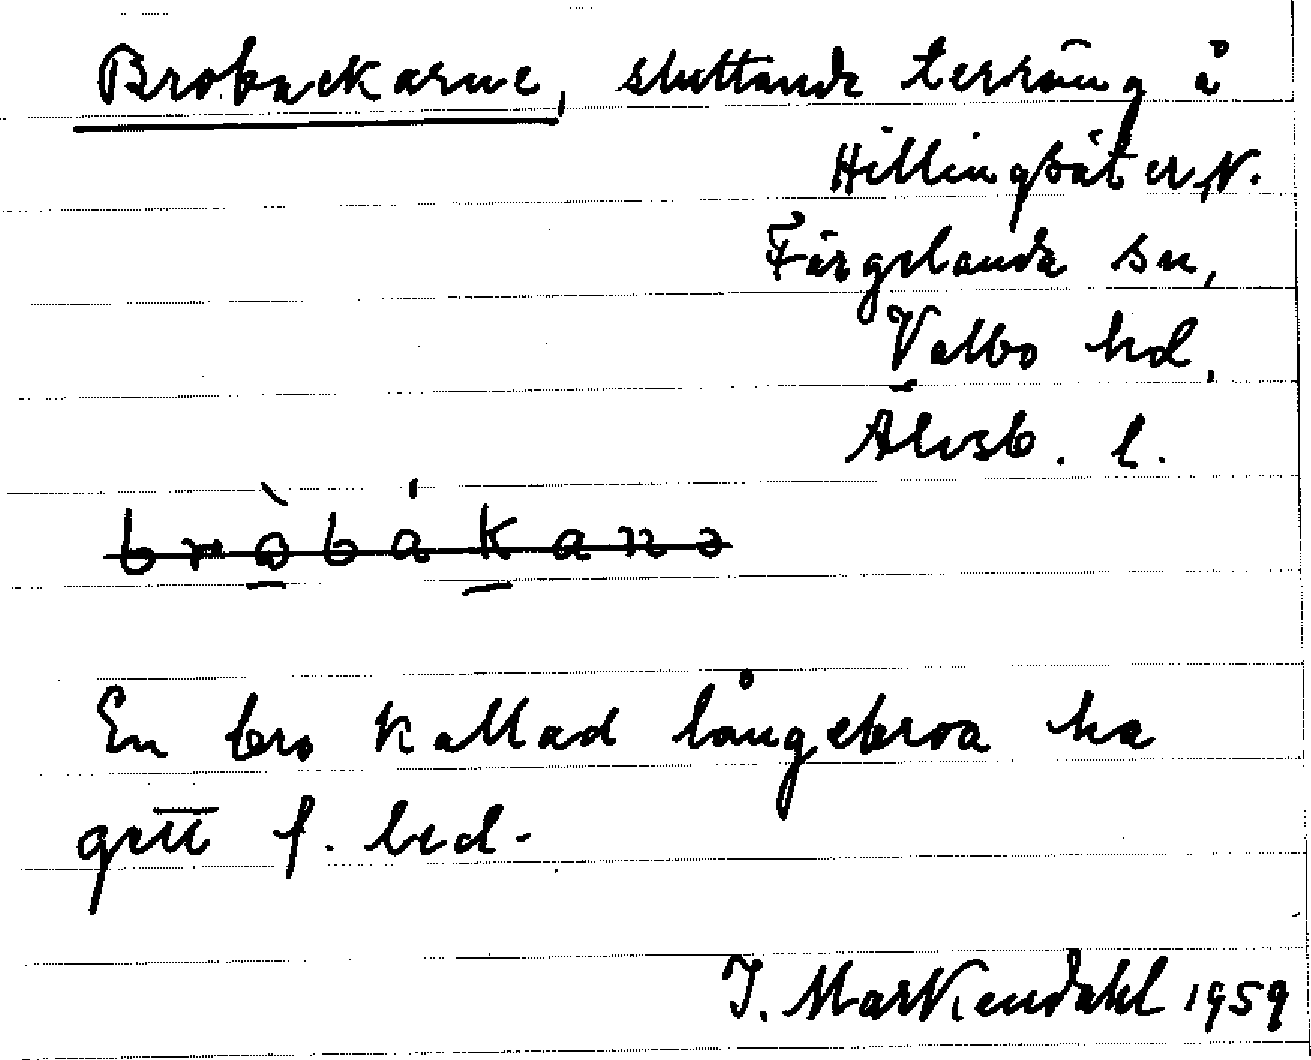 Brobackarne, sluttande terräng å
Hillingsäter N.
Färgelanda sn,
Valbo hd,
Älvsb. l.
bròbákanə
En bro kallad långebroa ha
gett f. led.
J. Markendahl 1959